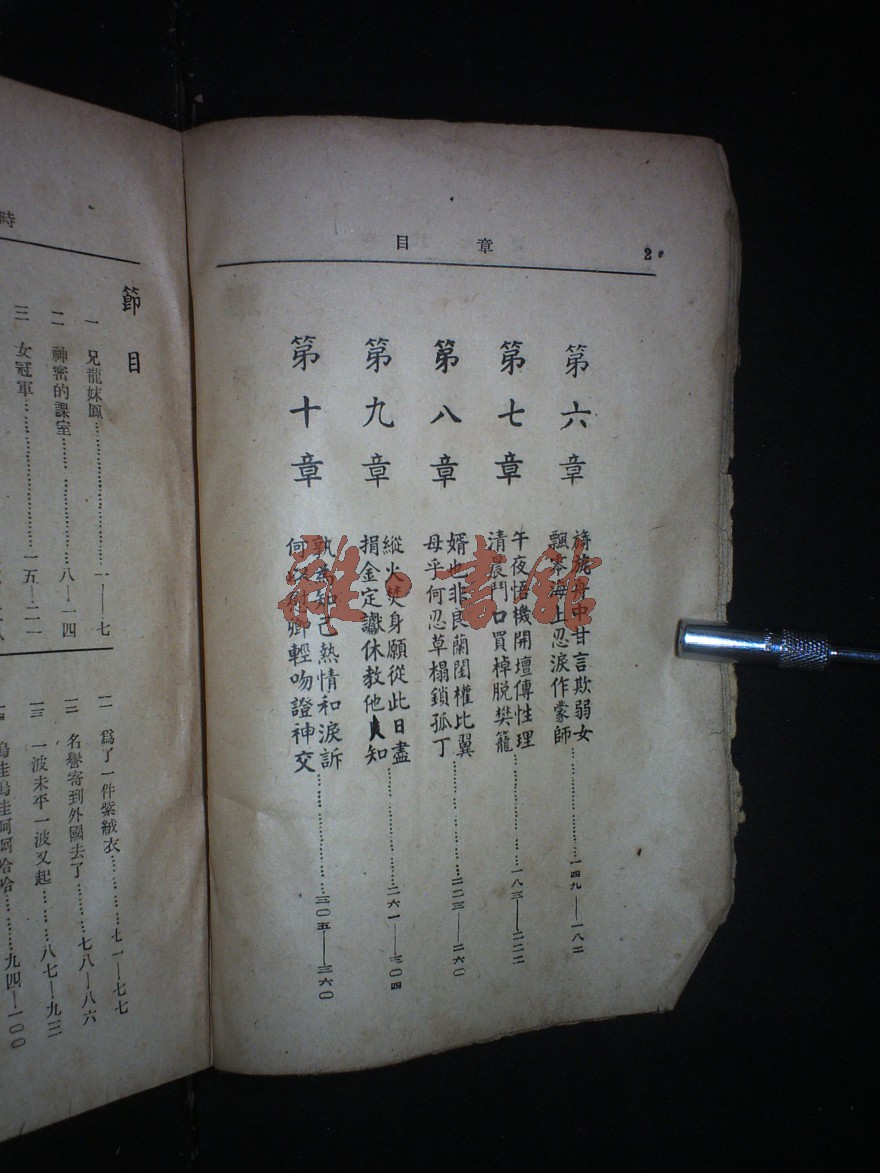 章目
2
第六章
甘言欺弱女
海上忍淚作蒙師
一四九——一八二
第七章
午夜悟機開壇傳性理
清晨鬥口買棹脫樊籠
一八三——二二二
第八章
婿也非良蘭閨權比翼
母乎何忍草榻鎖孤丁
二二三——二六〇
第九章
縱火焚身願從此日盡
捐金定讞休教他人知
二六一——三〇四
第十章
孰為知己熱情和淚訴
卿輕吻證神交
三〇五——三六〇
雜·書館
時
節目
一 兄龍妹鳳 一——七
二 神密的課室 八——一四
三 女冠軍 一五——二一
一一 為了一件紫絨衣 七一——七七
一二 名譽寄到外國去了 七八——八六
一三 一波未平一波又起 八七——九三
哈哈 九四——一〇〇